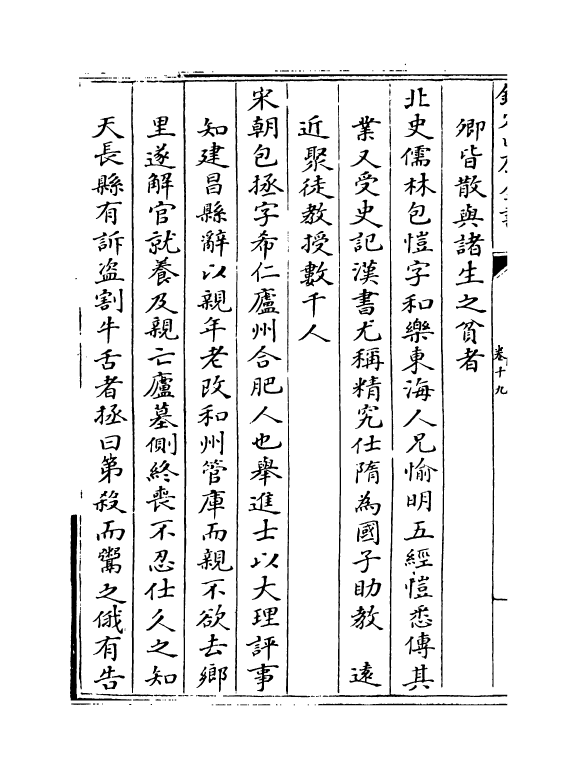 欽定四庫全書
卷十九
卿皆散與諸生之貧者
北史儒林包愷字和樂東海人兄愉明五經愷悉傳其
業又受史記漢書尤稱精究仕隋為國子助教　遠
近聚徒教授數千人
宋朝包拯字希仁廬州合肥人也舉進士以大理評事
知建昌縣辭以親年老改和州管庫而親不欲去鄉
里遂解官就養及親亡廬墓側終喪不忍仕久之知
天長縣有訴盗割牛舌者拯曰第殺而鬻之俄有告